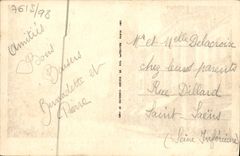 7615/98
Amitiés
Bons
Baisers
Bernadette et
Pierre
Mr et Melle Delacroix
chez leurs parents
Rue Dillard
Saint-Saëns
(Seine Inférieure)